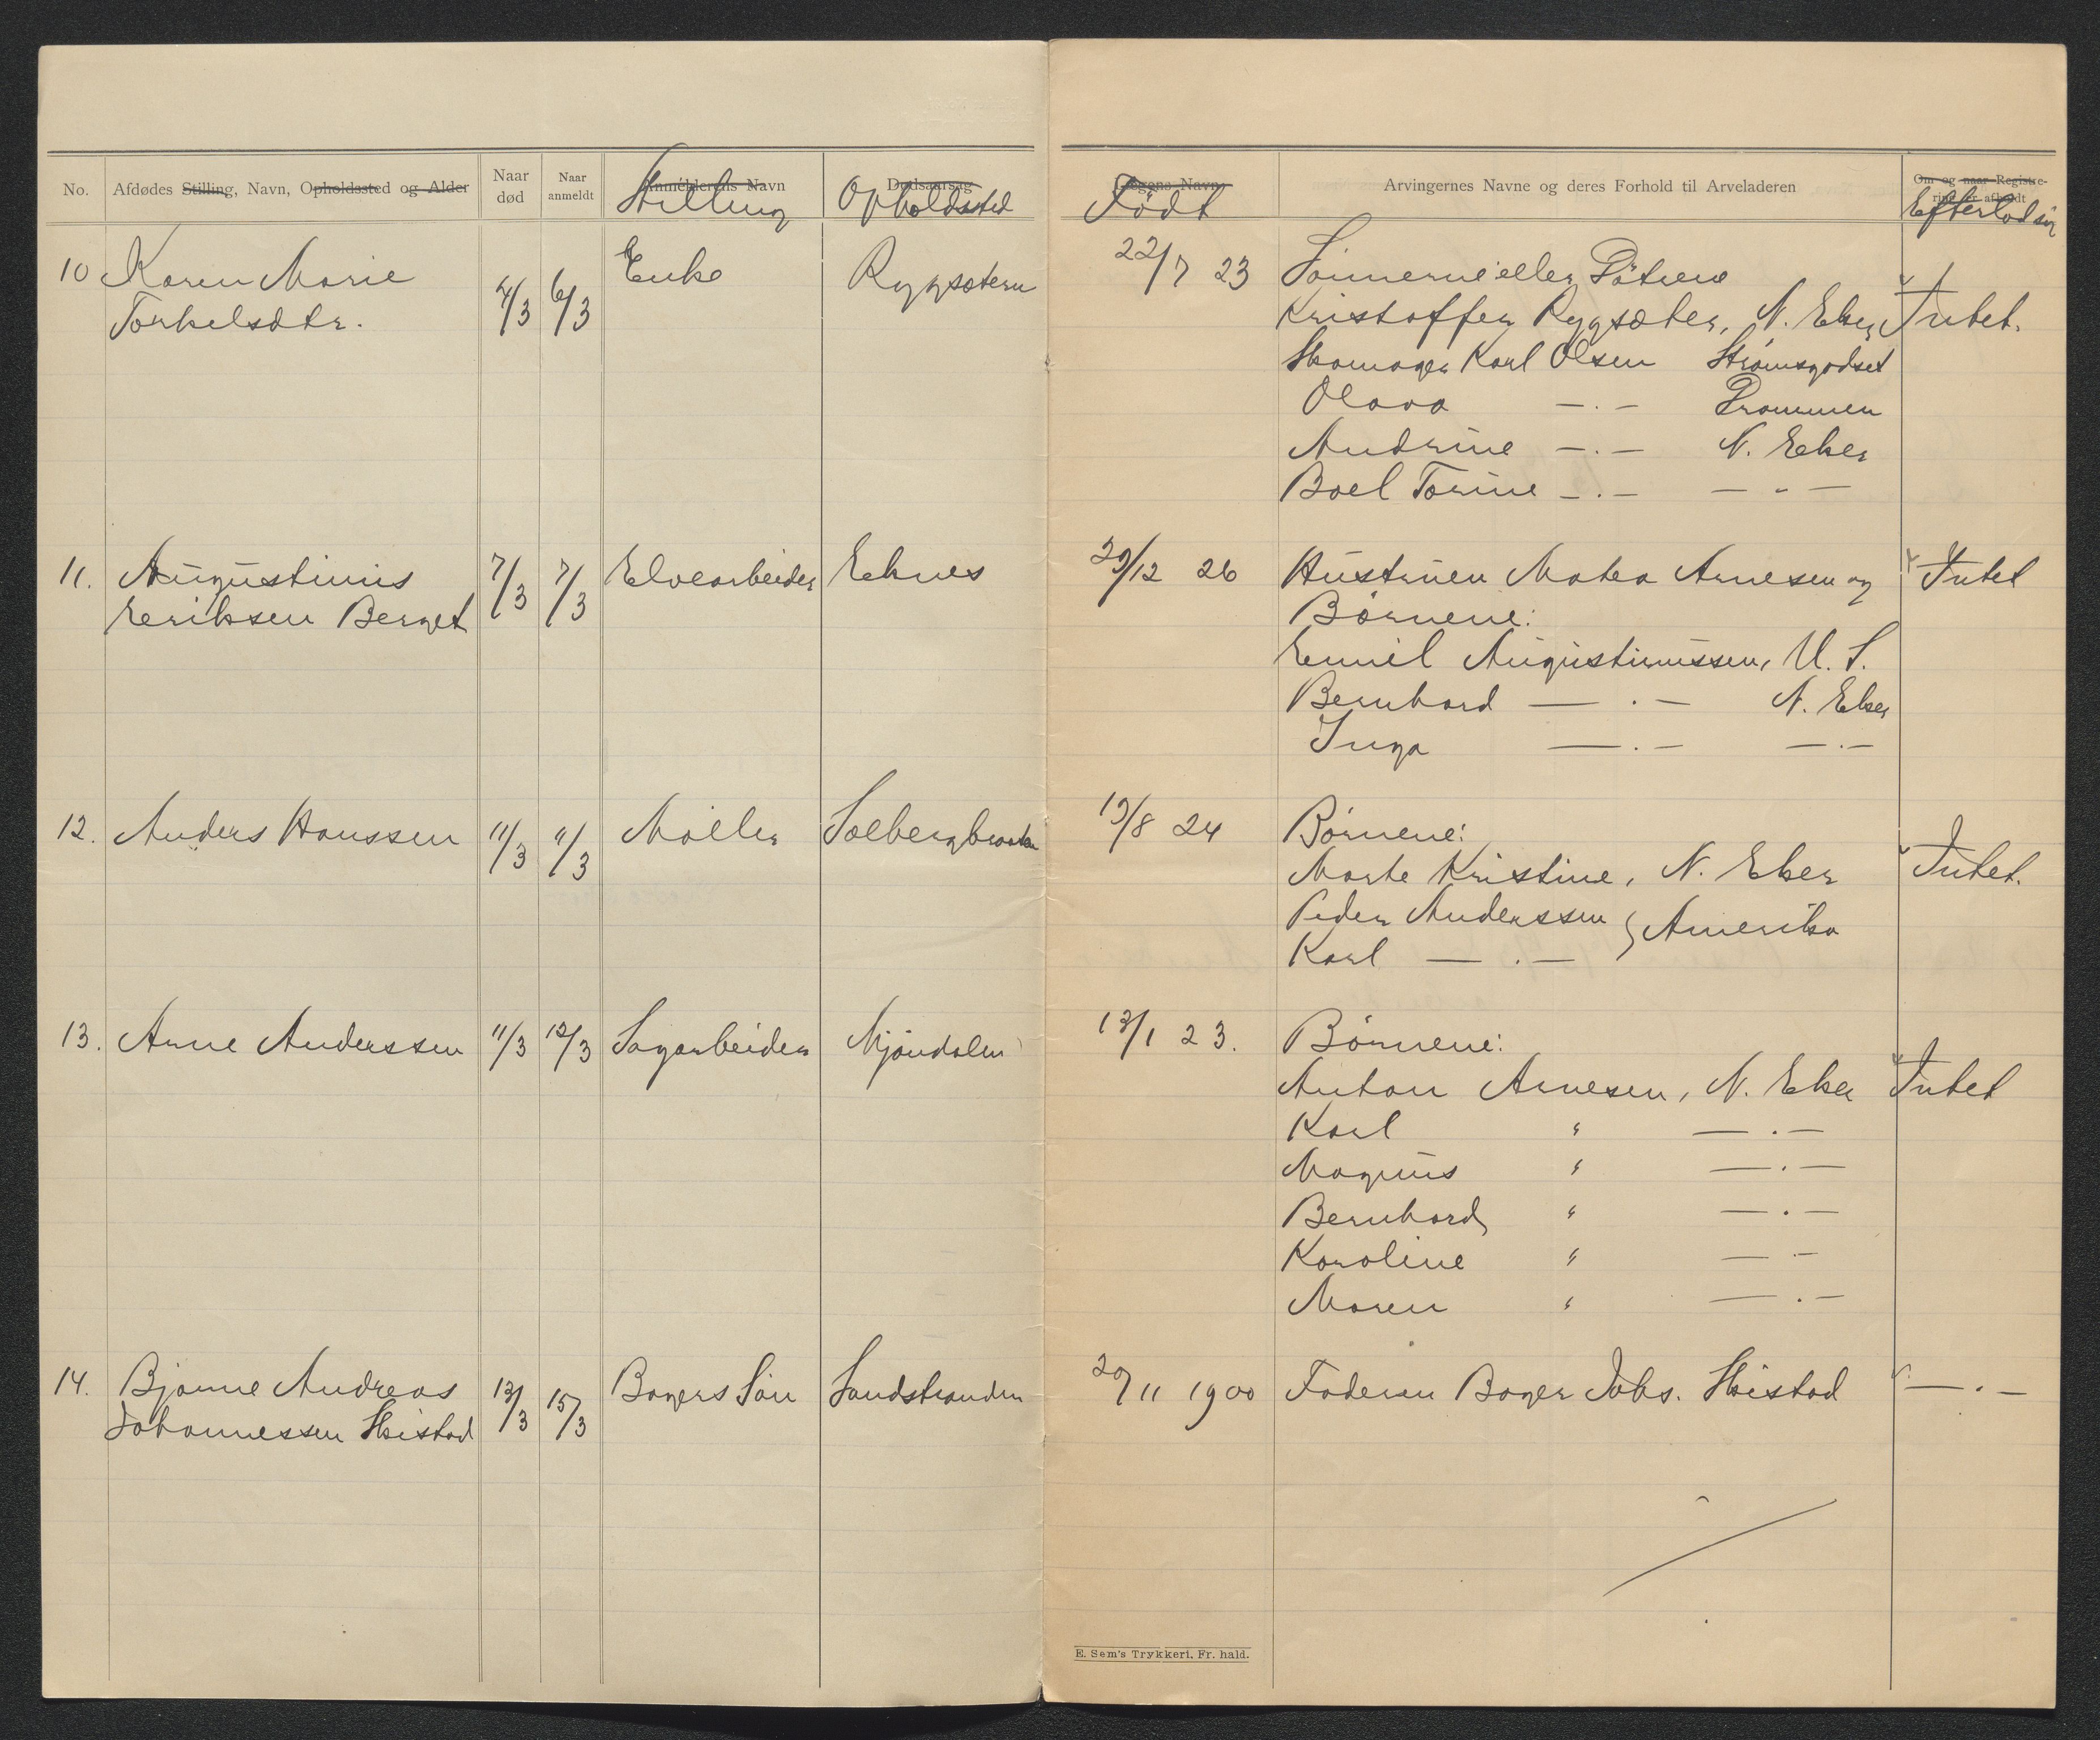 No. Afdødes Stilling, Navn, Opholdssted og Alder Naar død Naar anmeldt Anmelderens Navn Stilling Dødsaarsag Opholdssted Født Arvingernes Navne og deres Forhold til Arveladeren Om og naar Registrering er afholdt Efterladsig
10 Karen Marie 4/3 6/3 Enke Rygsætern 22/7 23 Sønnerne eller Døtrene
Torkelsdtr. Kristoffer Rygsæter, N. Eker Intet.
Skomager Karl Olsen Strømsgodset
Olava —.— Drammen
Andrine —.— N. Eker
Boel Torine —.— — " —
11. Augustinus 7/3 7/3 Elvearbeider Eknes 29/12 26 Hustruen Matea Arnesen og Intet
Eriksen Berget Børnene:
Emil Augustinussen, U. S.
Bernhard —.— N. Eker
Inga —.— —.—
12. Anders Hanssen 11/3 11/3 Møller Solbergbraaten 19/8 24 Børnene:
Marte Kristine, N. Eker Intet.
Peder Anderssen } Amerika
Karl —.—
13. Arne Anderssen 11/3 12/3 Sagarbeider Mjøndalen 13/1 23. Børnene:
Anton Arnesen, N. Eker Intet
Karl " —.—
Magnus " —.—
Bernhard " —.—
Karoline " —.—
Maren " —.—
14. Bjarne Andreas 13/3 15/3 Bagers Søn Sandstranden 20/11 1900 Faderen Bager Johs. Skistad —.—
Johannessen Skistad
E. Sem's Trykkeri, Fr. hald.